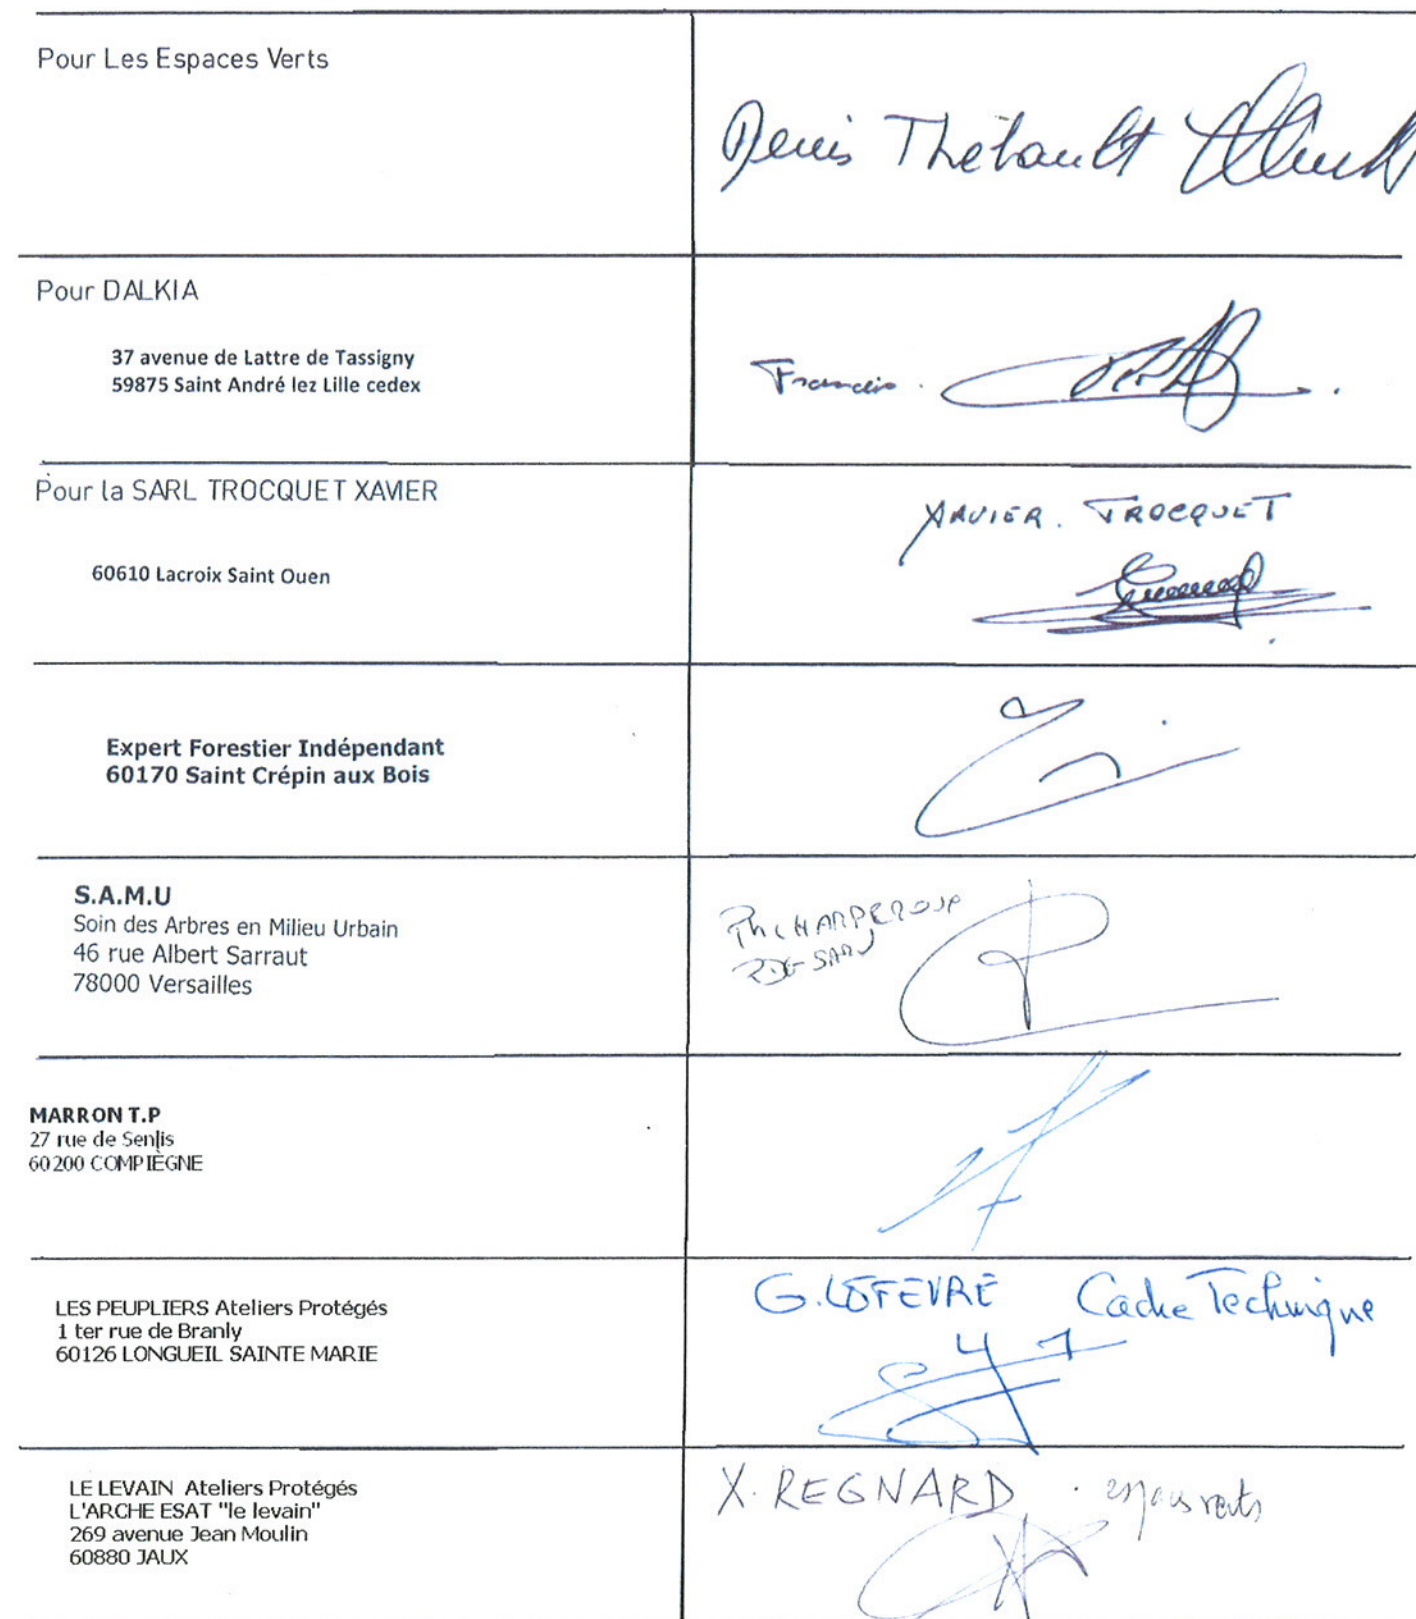 Pour Les Espaces Verts
Denis Thétault
Pour DALKIA
37 avenue de Lattre de Tassigny
59875 Saint André lez Lille cedex
Francis
Pour la SARL TROCQUET XAVIER
60610 Lacroix Saint Ouen
XAVIER. TROCQUET
Expert Forestier Indépendant
60170 Saint Crépin aux Bois
S.A.M.U
Soin des Arbres en Milieu Urbain
46 rue Albert Sarraut
78000 Versailles
MARRON T.P
27 rue de Senlis
60200 COMPIÈGNE
LES PEUPLIERS Ateliers Protégés
1 ter rue de Branly
60126 LONGUEIL SAINTE MARIE
G. LEFEVRE Cadre Technique
LE LEVAIN Ateliers Protégés
L'ARCHE ESAT "le levain"
269 avenue Jean Moulin
60880 JAUX
X. REGNARD . espaces verts